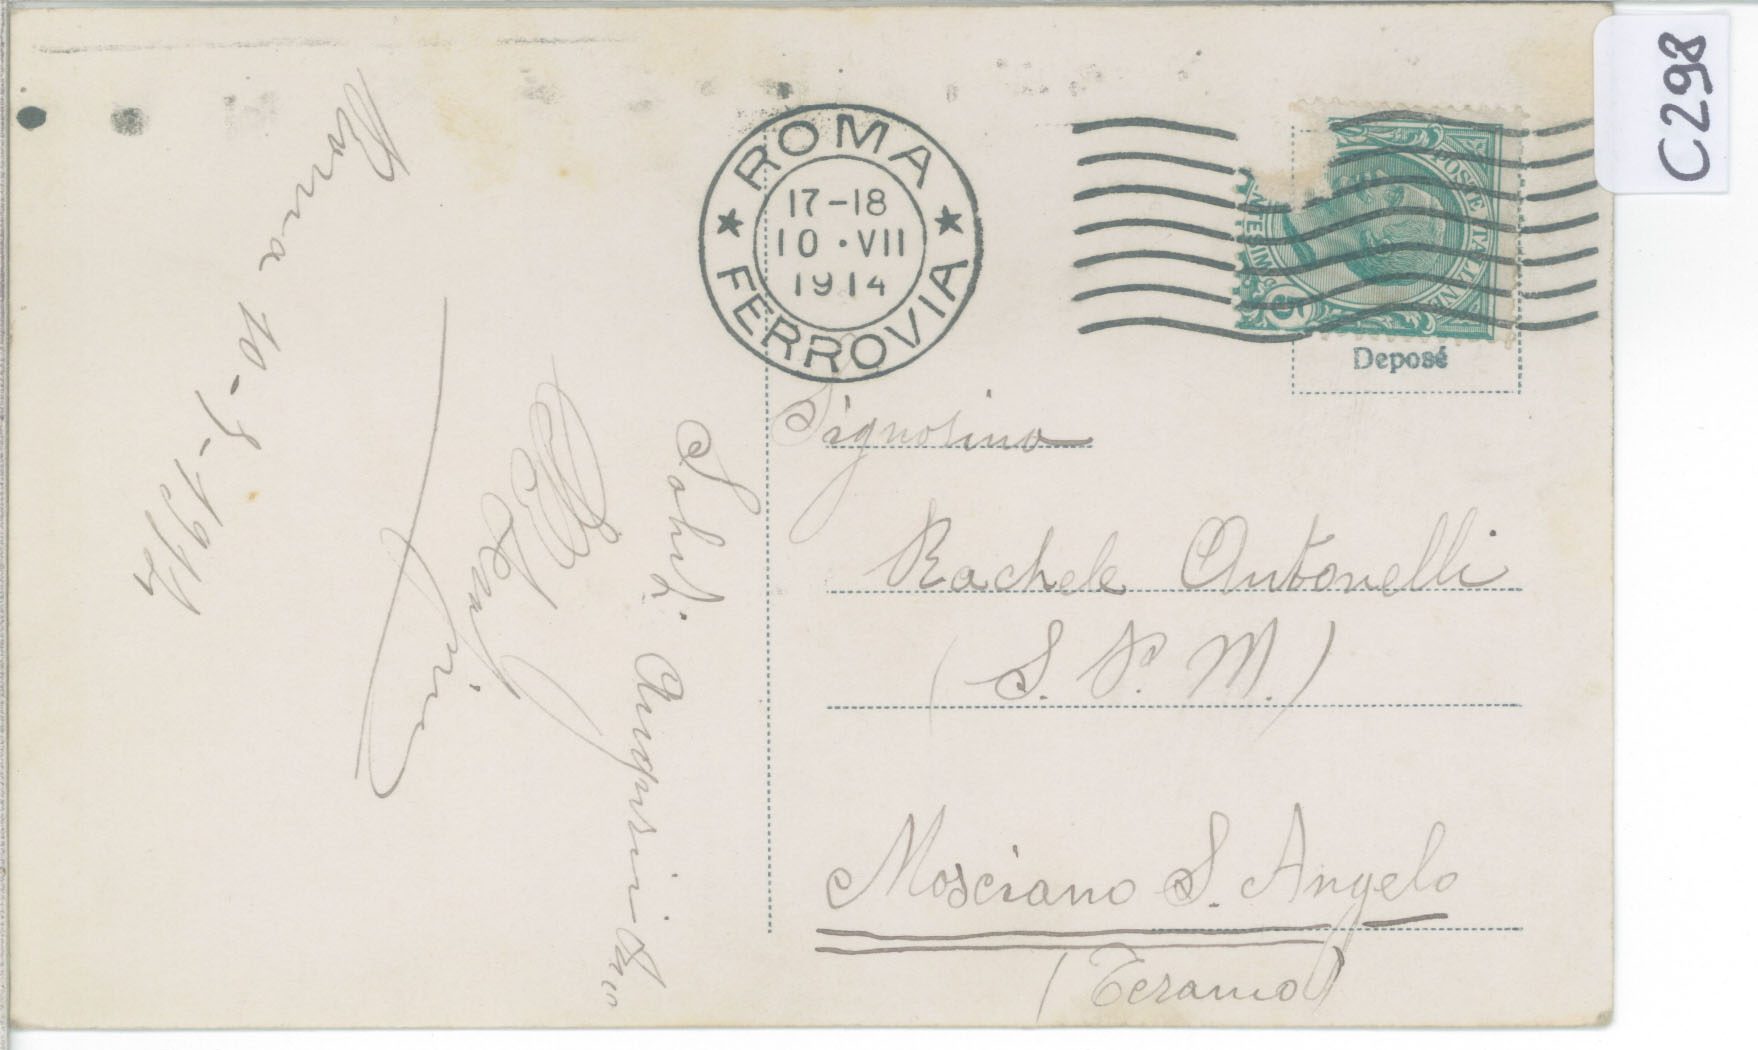 C298
ROMA
17-18
10 · VII
1914
FERROVIA
POSTE ITALIANE
5
Deposé
Signorina
Rachele Antonelli
(S. P. M.)
Mosciano S. Angelo
(Teramo)
Roma 10-7-1914